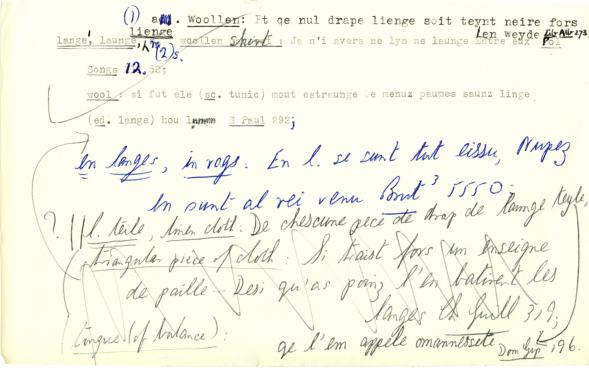 (1) a. Woollen: Et qe nul drape lienge soit teynt neire fors
lienge
en weyde Lib Alb 273,
lange, launge, woollen shirt: Ja n'i avera ne lyn ne launge entre eux Pol
(2) s.
Songs 12.58;
wool: si fut ele (sc. tunic) mout estraunge De menuz paumes saunz linge
(ed. lange) hou lange S Paul 292;
en langes, in rags: En l. se sunt tut eissu, Nupez
en sunt al rei venu Brut³ 5550.
? l. teile, linen cloth: De chescune pece de drap de launge teyle,
triangular piece of cloth: Si traist fors un enseigne
de paille - Desi qu'as poinz l'en batirent les
langes Ch Guill 319;
tongue (of balance): qe l'em appele omannessete Dom Gip² 196.